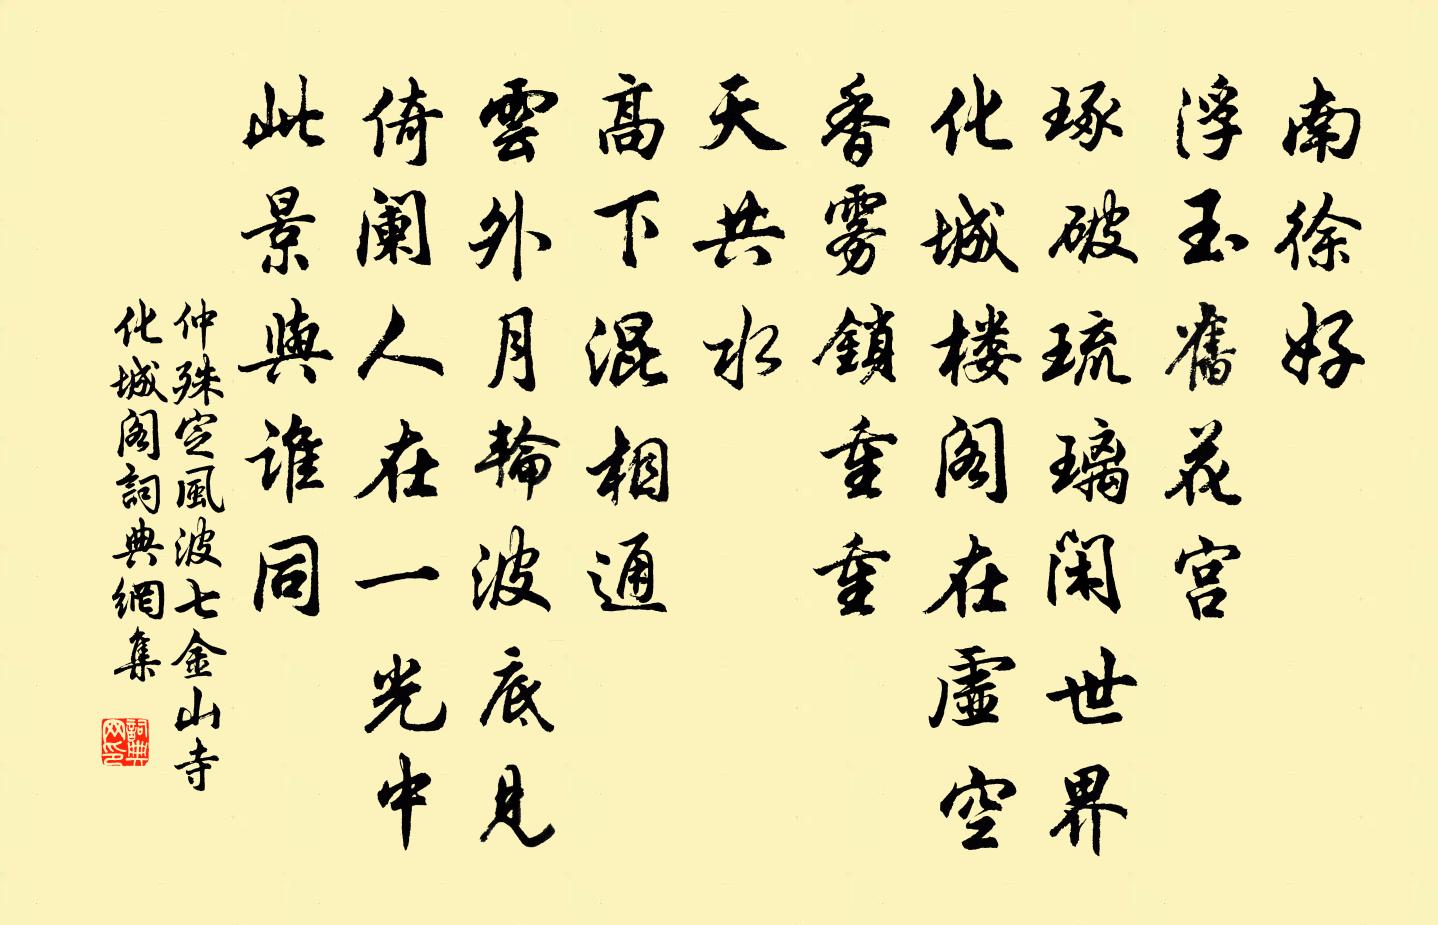 南徐好
浮玉舊花宫
琢破琉璃闲世界
化城楼阁在虚空
香雾鎖重重
天共水
高下混相通
雲外月輪波底見
倚阑人在一光中
此景與誰同
仲殊定風波七金山寺
化城阁詞典網集
詞典
网印